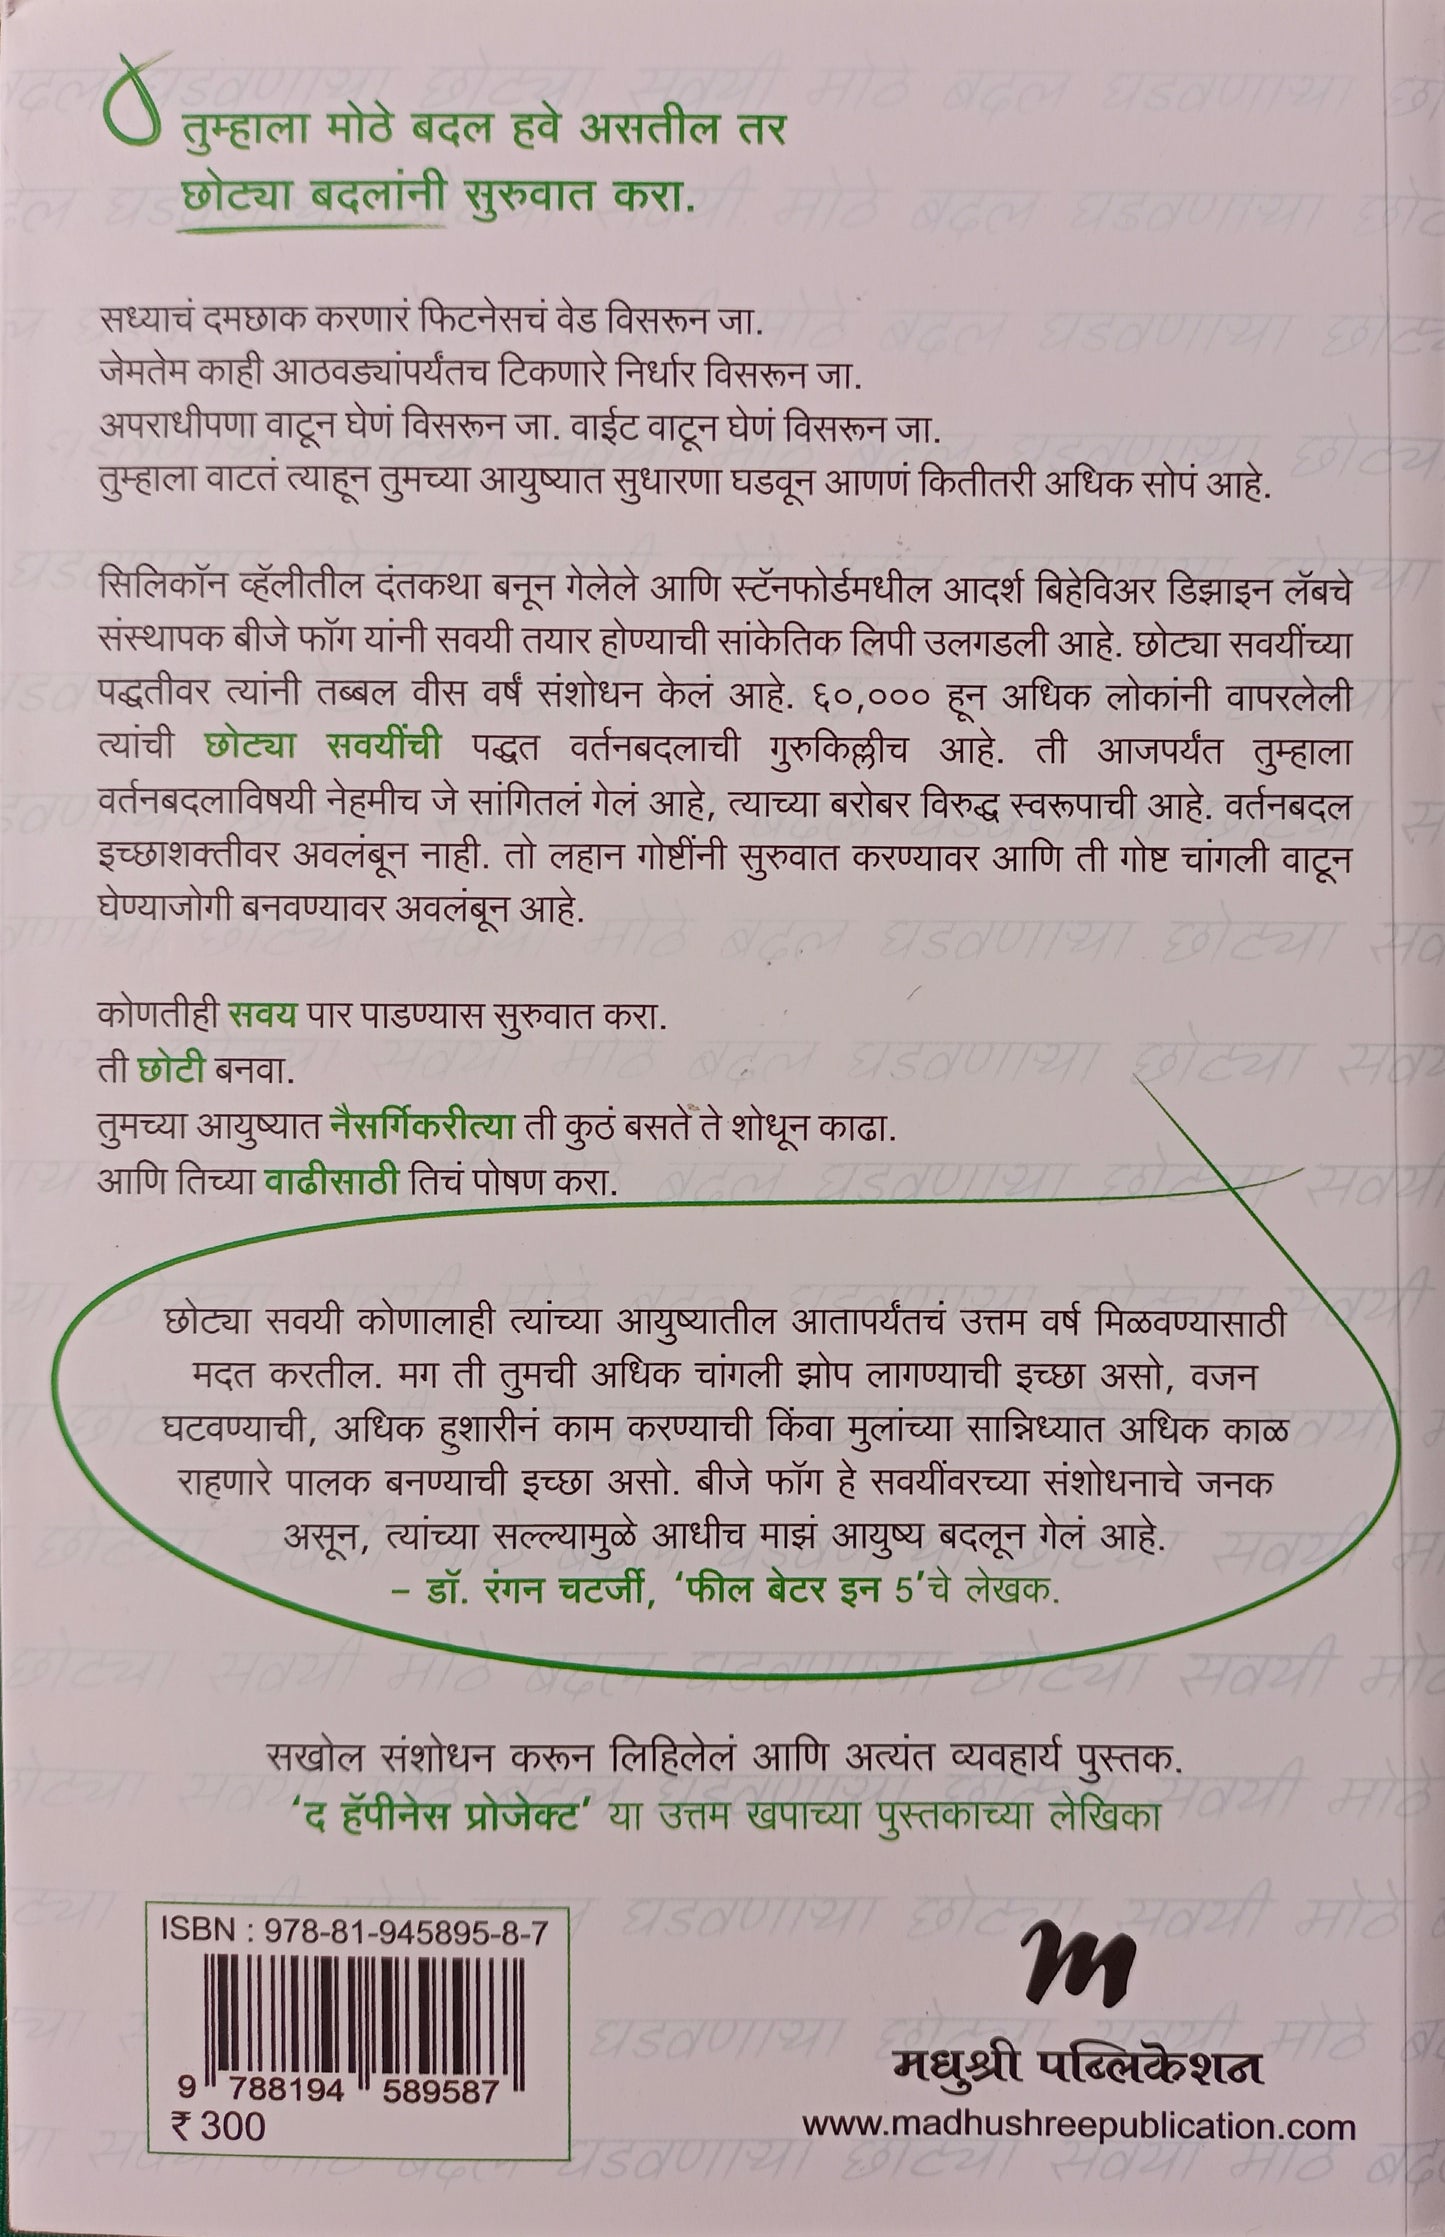 तुम्हाला मोठे बदल हवे असतील तर
छोट्या बदलांनी सुरुवात करा.
सध्याचं दमछाक करणारं फिटनेसचं वेड विसरून जा.
जेमतेम काही आठवड्यांपर्यंतच टिकणारे निर्धार विसरून जा.
अपराधीपणा वाटून घेणं विसरून जा. वाईट वाटून घेणं विसरून जा.
तुम्हाला वाटतं त्याहून तुमच्या आयुष्यात सुधारणा घडवून आणणं कितीतरी अधिक सोपं आहे.
सिलिकॉन व्हॅलीतील दंतकथा बनून गेलेले आणि स्टॅनफोर्डमधील आदर्श बिहेविअर डिझाइन लॅबचे
संस्थापक बीजे फॉग यांनी सवयी तयार होण्याची सांकेतिक लिपी उलगडली आहे. छोट्या सवयींच्या
पद्धतीवर त्यांनी तब्बल वीस वर्षं संशोधन केलं आहे. ६०,००० हून अधिक लोकांनी वापरलेली
त्यांची छोट्या सवयींची पद्धत वर्तनबदलाची गुरुकिल्लीच आहे. ती आजपर्यंत तुम्हाला
वर्तनबदलाविषयी नेहमीच जे सांगितलं गेलं आहे, त्याच्या बरोबर विरुद्ध स्वरूपाची आहे. वर्तनबदल
इच्छाशक्तीवर अवलंबून नाही. तो लहान गोष्टींनी सुरुवात करण्यावर आणि ती गोष्ट चांगली वाटून
घेण्याजोगी बनवण्यावर अवलंबून आहे.
कोणतीही सवय पार पाडण्यास सुरुवात करा.
ती छोटी बनवा.
तुमच्या आयुष्यात नैसर्गिकरीत्या ती कुठं बसते ते शोधून काढा.
आणि तिच्या वाढीसाठी तिचं पोषण करा.
छोट्या सवयी कोणालाही त्यांच्या आयुष्यातील आतापर्यंतचं उत्तम वर्ष मिळवण्यासाठी
मदत करतील. मग ती तुमची अधिक चांगली झोप लागण्याची इच्छा असो, वजन
घटवण्याची, अधिक हुशारीनं काम करण्याची किंवा मुलांच्या सान्निध्यात अधिक काळ
राहणारे पालक बनण्याची इच्छा असो. बीजे फॉग हे सवयींवरच्या संशोधनाचे जनक
असून, त्यांच्या सल्ल्यामुळे आधीच माझं आयुष्य बदलून गेलं आहे.
– डॉ. रंगन चटर्जी, ‘फील बेटर इन 5’चे लेखक.
सखोल संशोधन करून लिहिलेलं आणि अत्यंत व्यवहार्य पुस्तक.
‘द हॅपीनेस प्रोजेक्ट’ या उत्तम खपाच्या पुस्तकाच्या लेखिका
ISBN : 978-81-945895-8-7
9 788194 589587
₹ 300
m
मधुश्री पब्लिकेशन
www.madhushreepublication.com